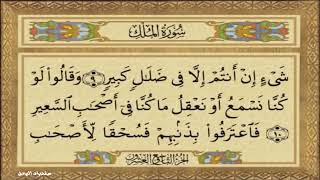 سُورَةُ الْمُلْكِ
شَىْءٍ إِنْ أَنتُمْ إِلَّا فِى ضَلَٰلٍ كَبِيرٍ ٩ وَقَالُوا۟ لَوْ
كُنَّا نَسْمَعُ أَوْ نَعْقِلُ مَا كُنَّا فِىٓ أَصْحَٰبِ ٱلسَّعِيرِ
١٠ فَٱعْتَرَفُوا۟ بِذَنۢبِهِمْ فَسُحْقًا لِّأَصْحَٰبِ